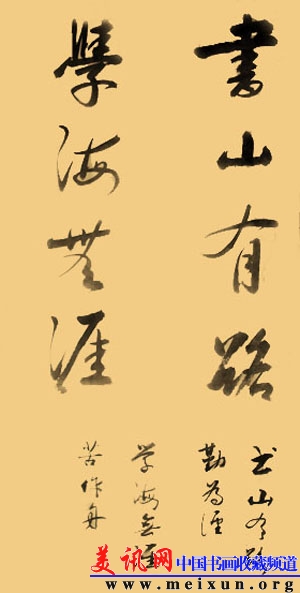 書山有路
學海無涯
书山有路
勤为径
学海无涯
苦作舟
美讯网 中国书画收藏频道
www.meixun.org